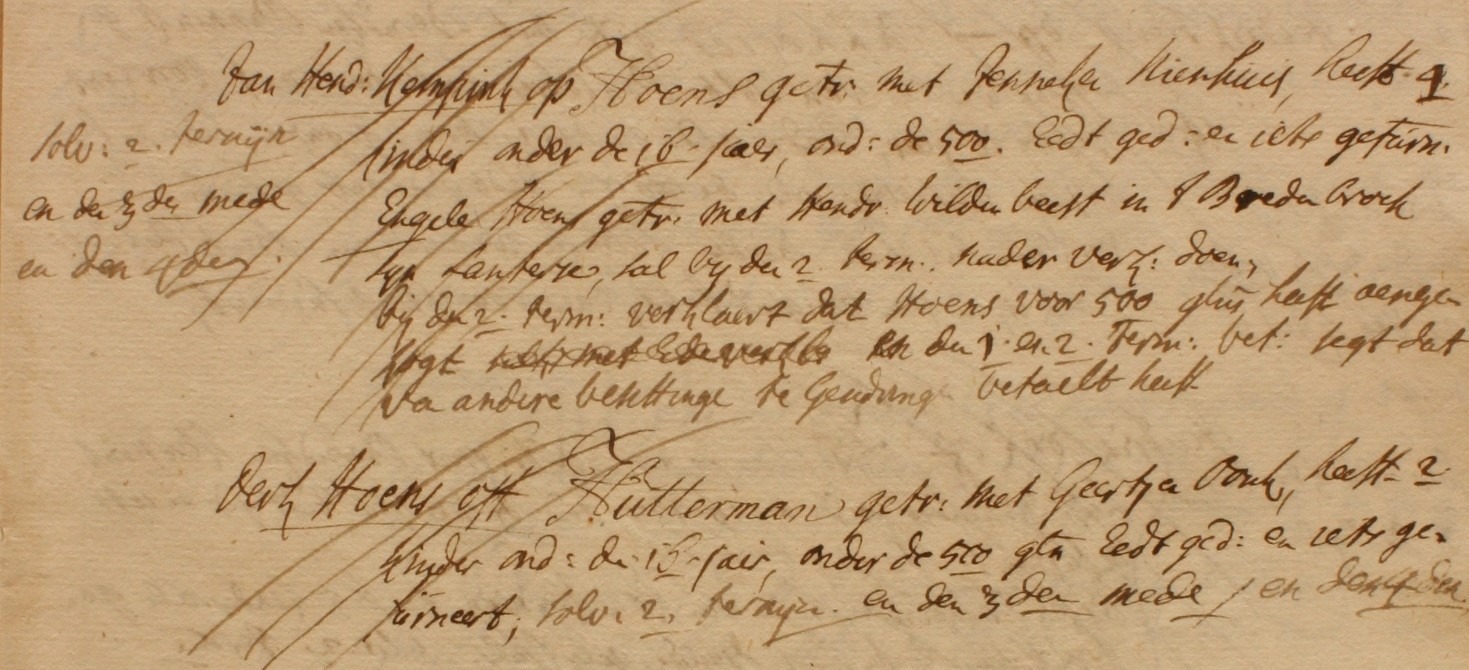 Jan Hend: Hemsink op Hoens getr: met Jenneken Nienhuis, heeft 1
solv: 2. termijn
kinder onder de 16 jaer, ond: de 500. Eedt ged: en iets gefurn:
en den 3den mede
Engele Hoens getr: met Hendr Wildenbeest in 't Bredenbroek
en den 4den.
syn tanterse, sal by den 2 term: nader verkl: doen,
by den 2. term: verklaert dat Hoens voor 500 gln heeft aenge-
segt en den 1. en 2. Term: bet: segt dat
andere besittinge te Gendring betaelt heeft
Derk Hoens oft Hutterman getr: met Geertjen Oonk, heeft 2
kinder ond: de 16 jaer, onder de 500 gln Eedt ged: en iets ge-
furneert, solv: 2. termijn. en den 3den mede / en den 4den.